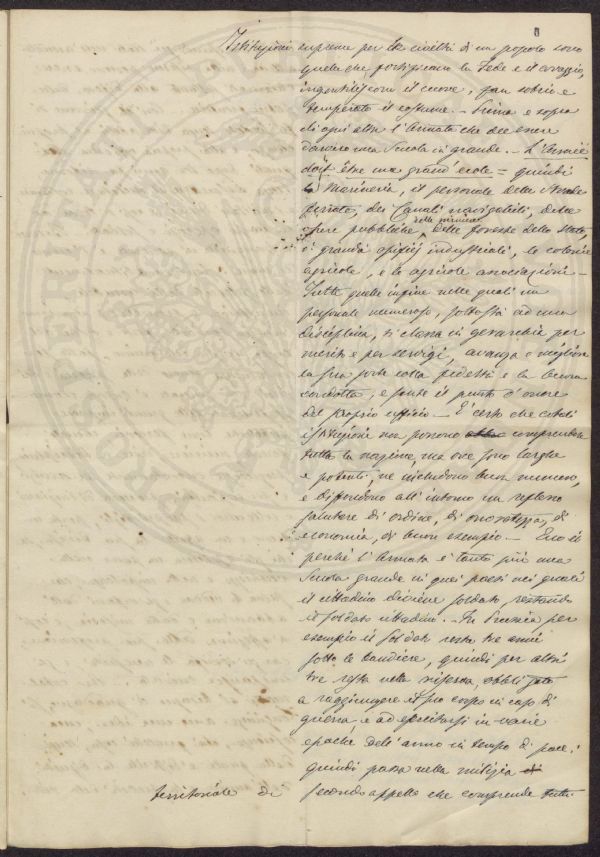 Istituzioni supreme per la civiltà di un popolo sono
quelle che fortificano la Fede e il coraggio,
ingentiliscono il cuore, fan sobrio e
temperato il costume. - Prima e sopra
di ogni altra l'Armata che dee essere
davvero una Scuola in grande. - L'Armée
doit être une grand' école = quindi
la Marineria, il personale delle Strade
ferrate, dei Canali navigabili, delle
opere pubbliche, delle miniere, delle foreste dello Stato
i grandi opifizj industriali, le colonie
agricole, e le agricole associazioni -
Tutte quelle infine nelle quali un
personale numeroso, sottostà ad una
disciplina, si classa in gerarchia per
merito e per servigi, avanza e migliora
la sua sorte colla fedeltà e la buona
condotta, e sente il punto d'onore
del proprio ufficio - È certo che cotali
istituzioni non possono comprendere
tutta la nazione, ma ove sono larghe
e potenti, ne includono buon numero,
e diffondono all'intorno un riflesso
salutare di ordine, di onoratezza, di
economia, di buon esempio. - Ecco il
perchè l'Armata è tanto più una
Scuola grande in quei paesi nei quali
il cittadino diviene soldato restando
il soldato cittadino. - In Prussia per
esempio il Soldato resta tre anni
sotto le bandiere, quindi per altri
tre resta nella riserva obbligato
a raggiungere il suo corpo in caso di
guerra e ad esercitarsi in varie
epoche dell'anno in tempo di pace;
quindi passa nella milizia
territoriale di secondo appello che comprende tutti